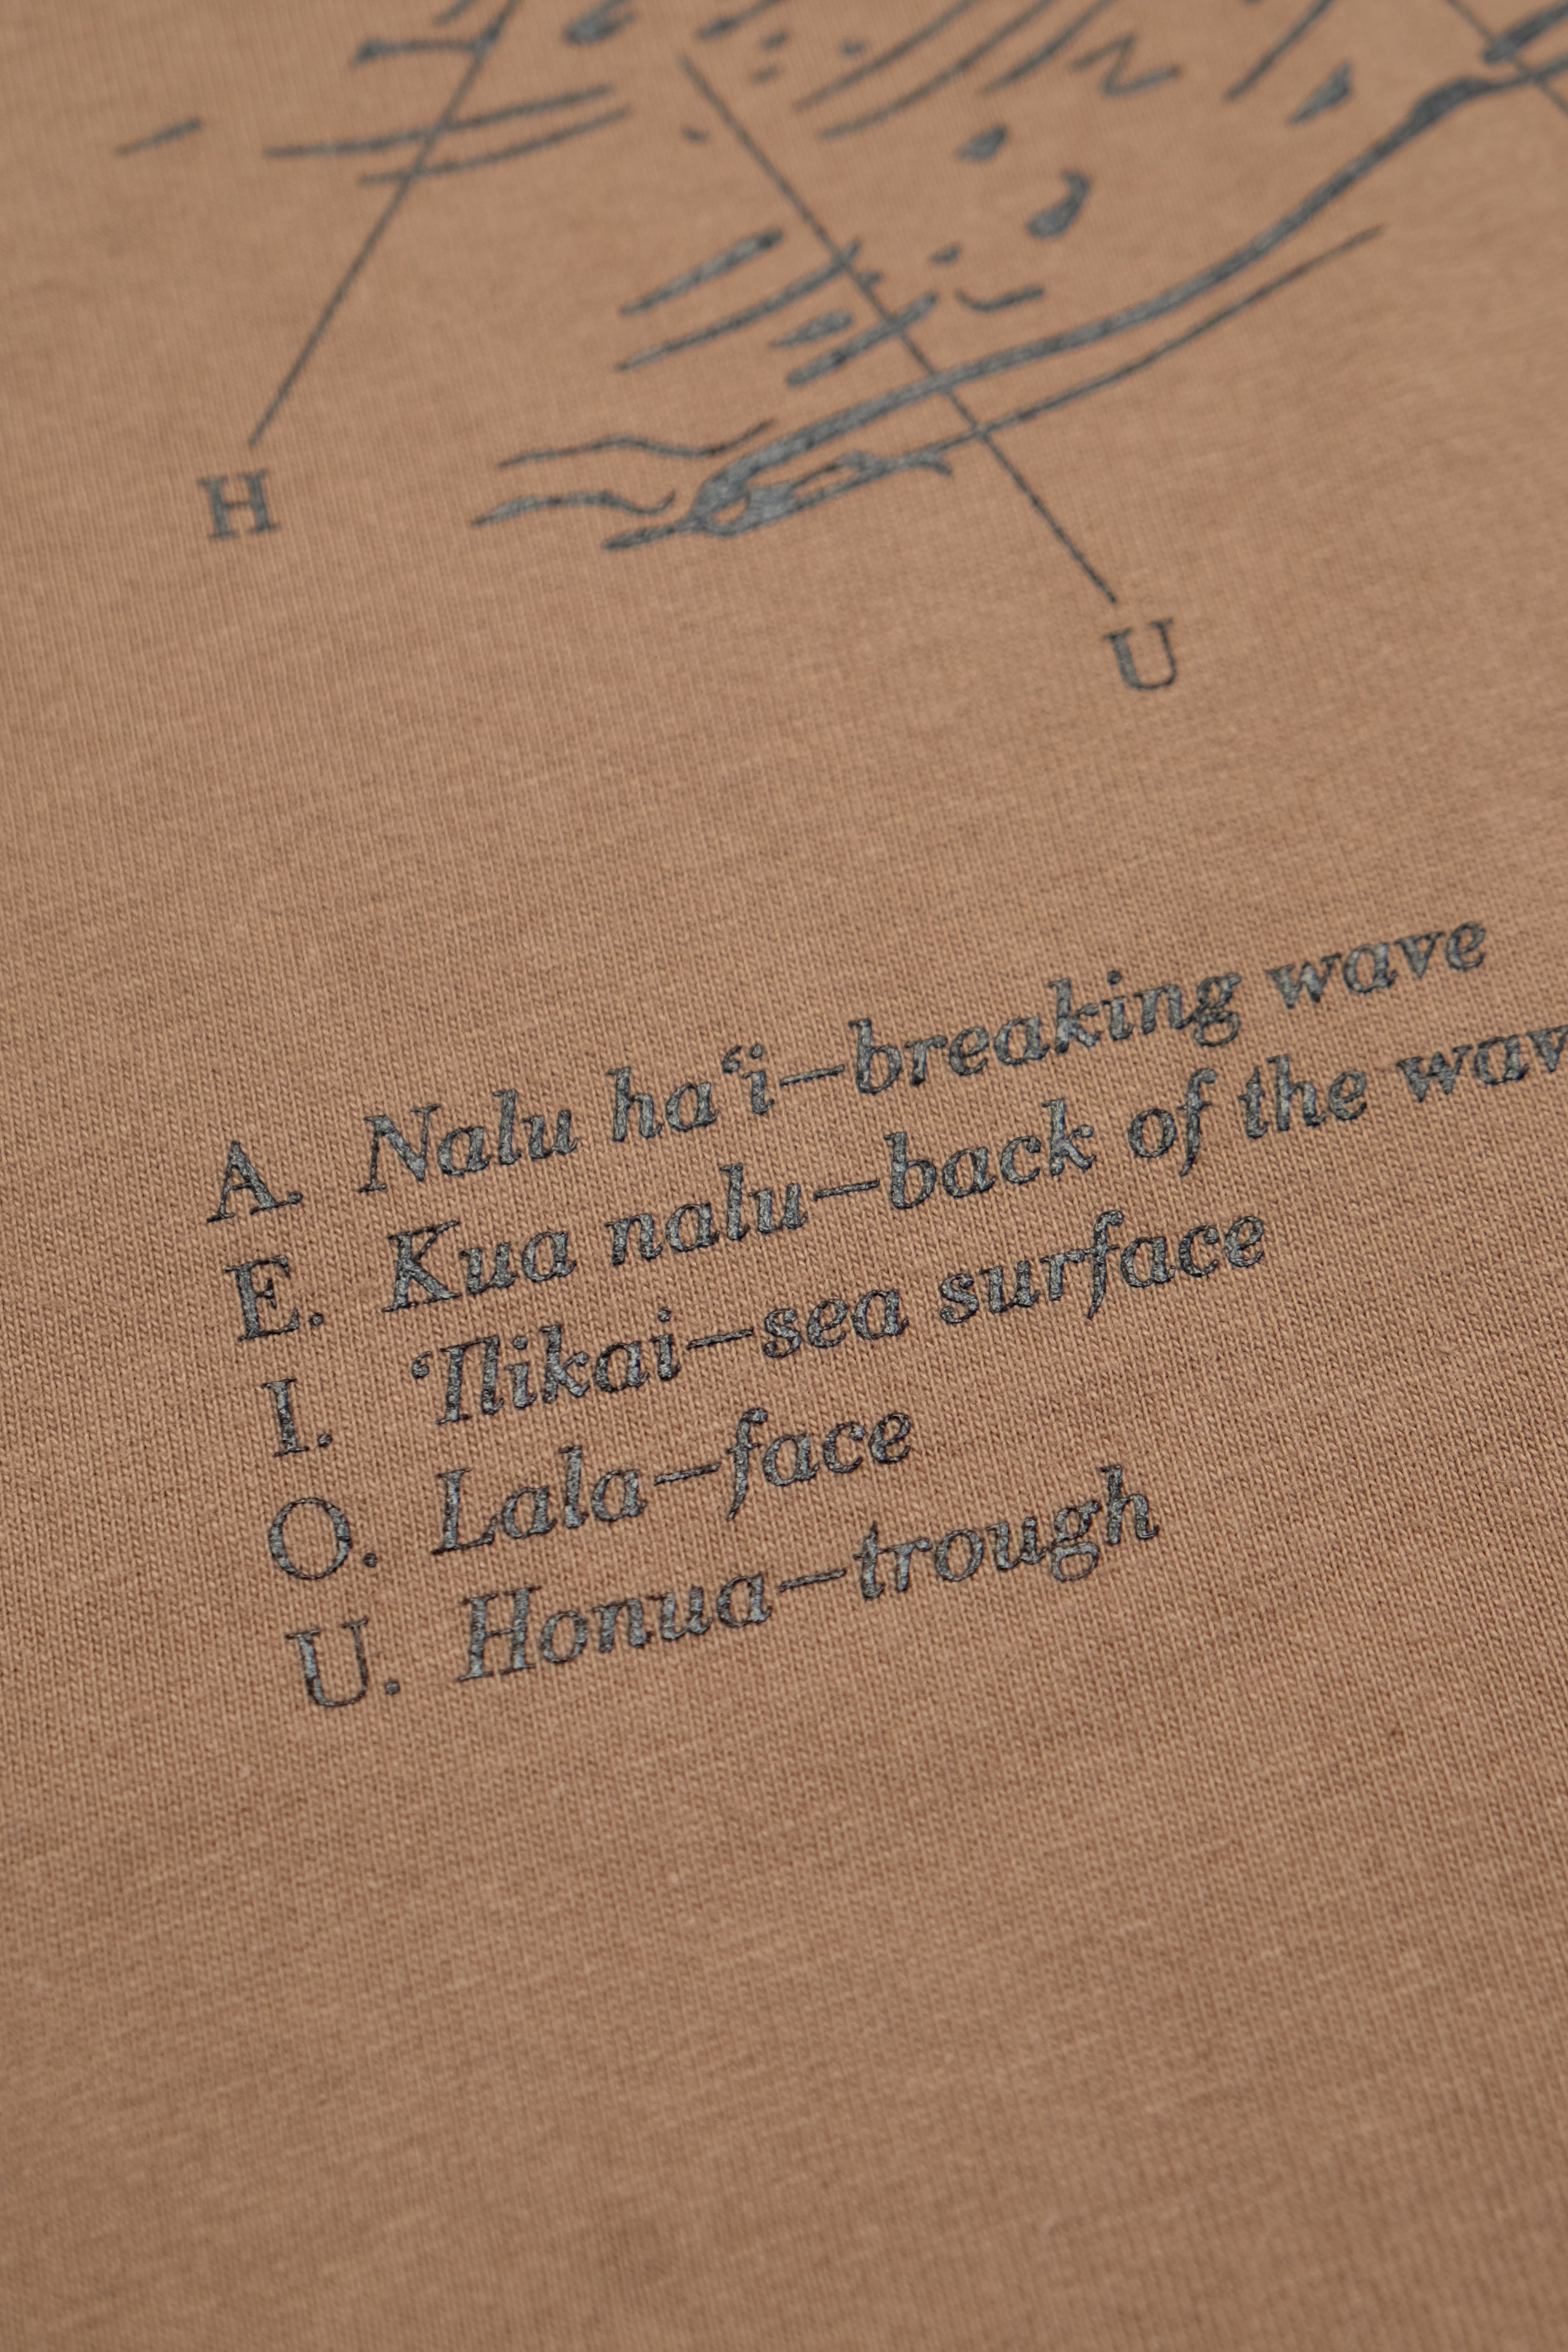 H
U
A. Nalu haʻi—breaking wave
E. Kua nalu—back of the wav
I. ʻIlikai—sea surface
O. Lala—face
U. Honua—trough